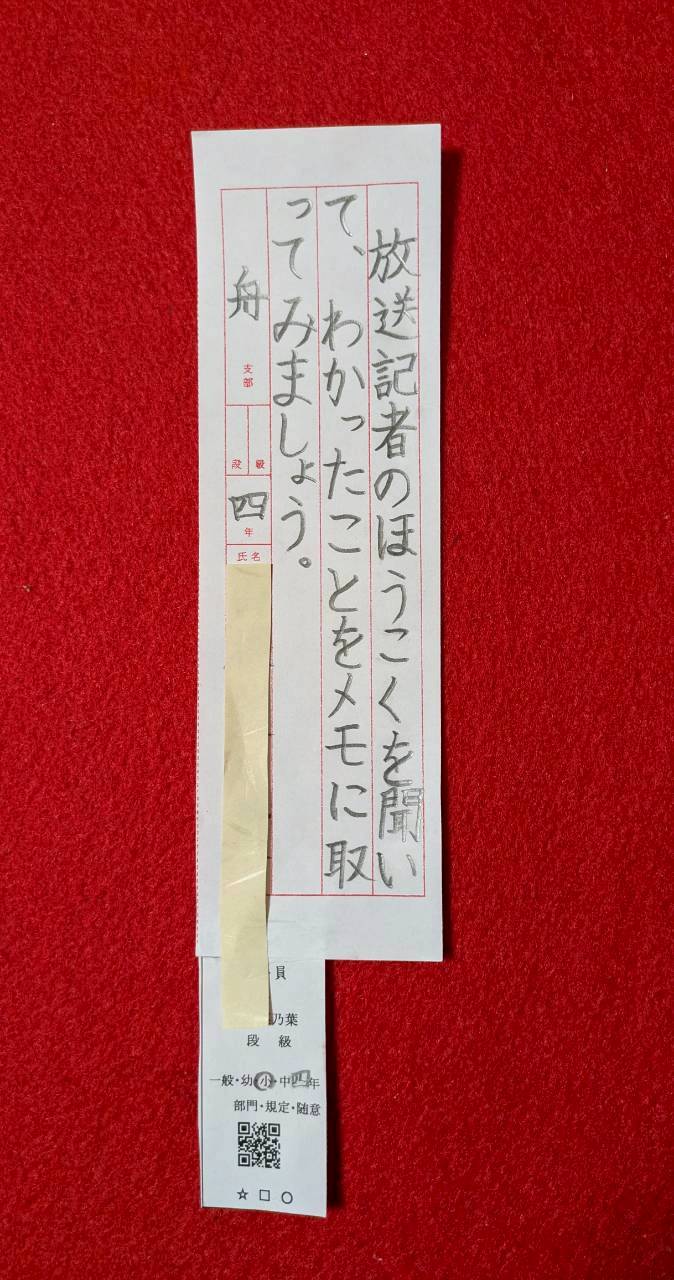 放送記者のほうこくを聞い
て、わかったことをメモに取
ってみましょう。
舟 支部
段 級
四年
氏名
員
乃葉
段 級
一般・幼・小・中 四年
部門・規定・随意
☆ □ ○